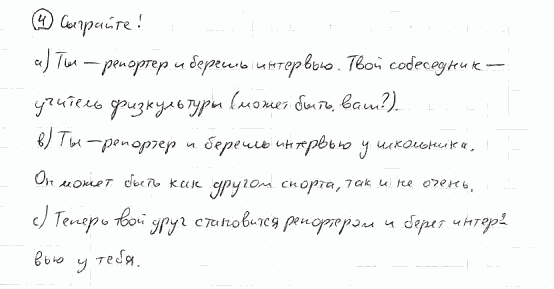 ④ Сыграйте!
а) Ты — репортер и берешь интервью. Твой собеседник —
учитель физкультуры (может быть, ваш?).
в) Ты — репортер и берешь интервью у школьника.
Он может быть как другом спорта, так и не очень.
с) Теперь твой друг становится репортером и берет интер-
вью у тебя.